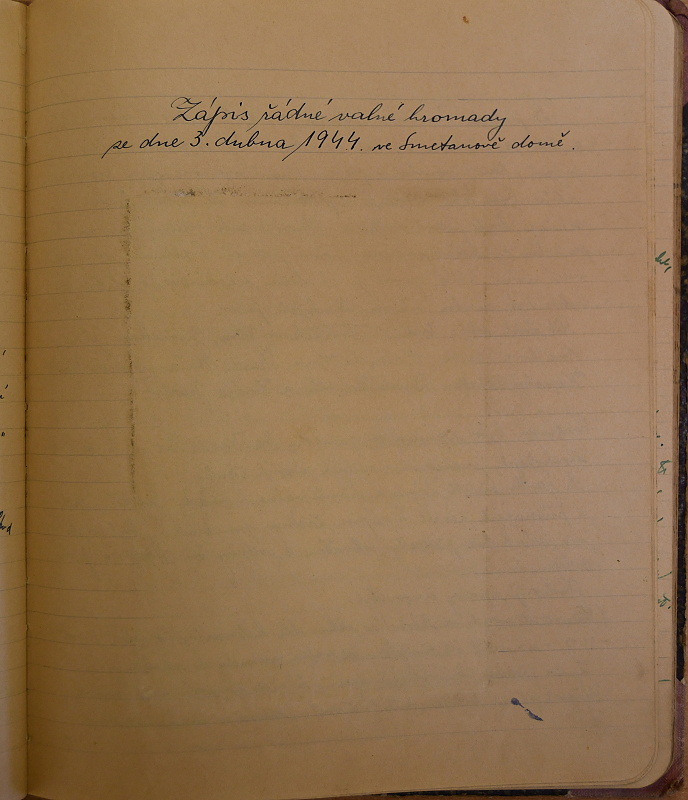 Zápis řádné valné hromady
ze dne 3. dubna 1944. ve Smetanově domě.